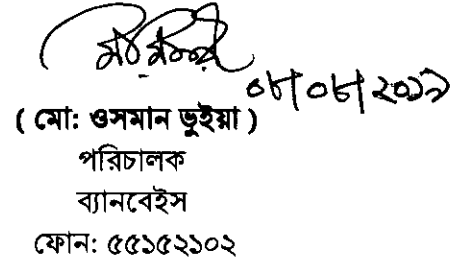 ০৮/০৮/২০১৯
( মো: ওসমান ভুইয়া )
পরিচালক
ব্যানবেইস
ফোন: ৫৫১৫২১০২